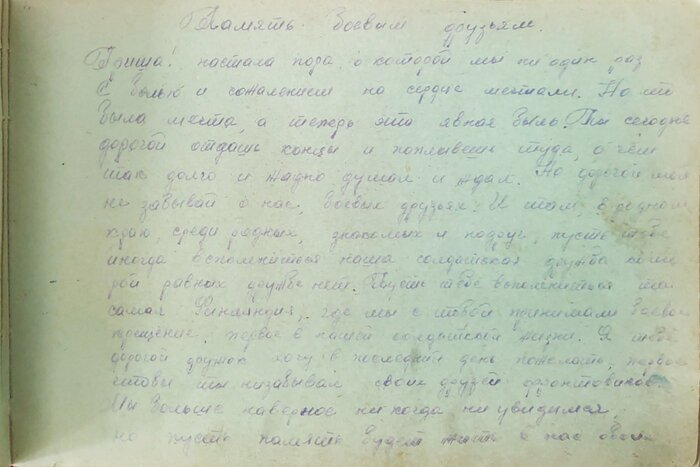 Память боевым друзьям.
Гриша! настала пора, о которой мы ни один раз
с болью и сожалением на сердце мечтали. Но то
была мечта, а теперь эта явная быль. Ты сегодня
дорогой отдашь концы и поплывешь туда, о чем
так долго и жадно думал и ждал. Но дорогой мой
не забывай о нас, боевых друзьях. И там, в родном
краю, среди родных, знакомых и подруг, пусть тебе
иногда вспомниться наша солдатская дружба кото
рой равных дружбе нет. Пусть тебе вспомниться та
самая Финляндия, где мы с тобой принимали боевое
крещение, первое в нашей солдатской жизни. Я тебе
дорогой дружок хочу в последний день пожелать, первое
чтобы ты незабывал своих друзей фронтовиков.
Мы больше наверное никогда не увидимся,
но пусть память будет жить о нас